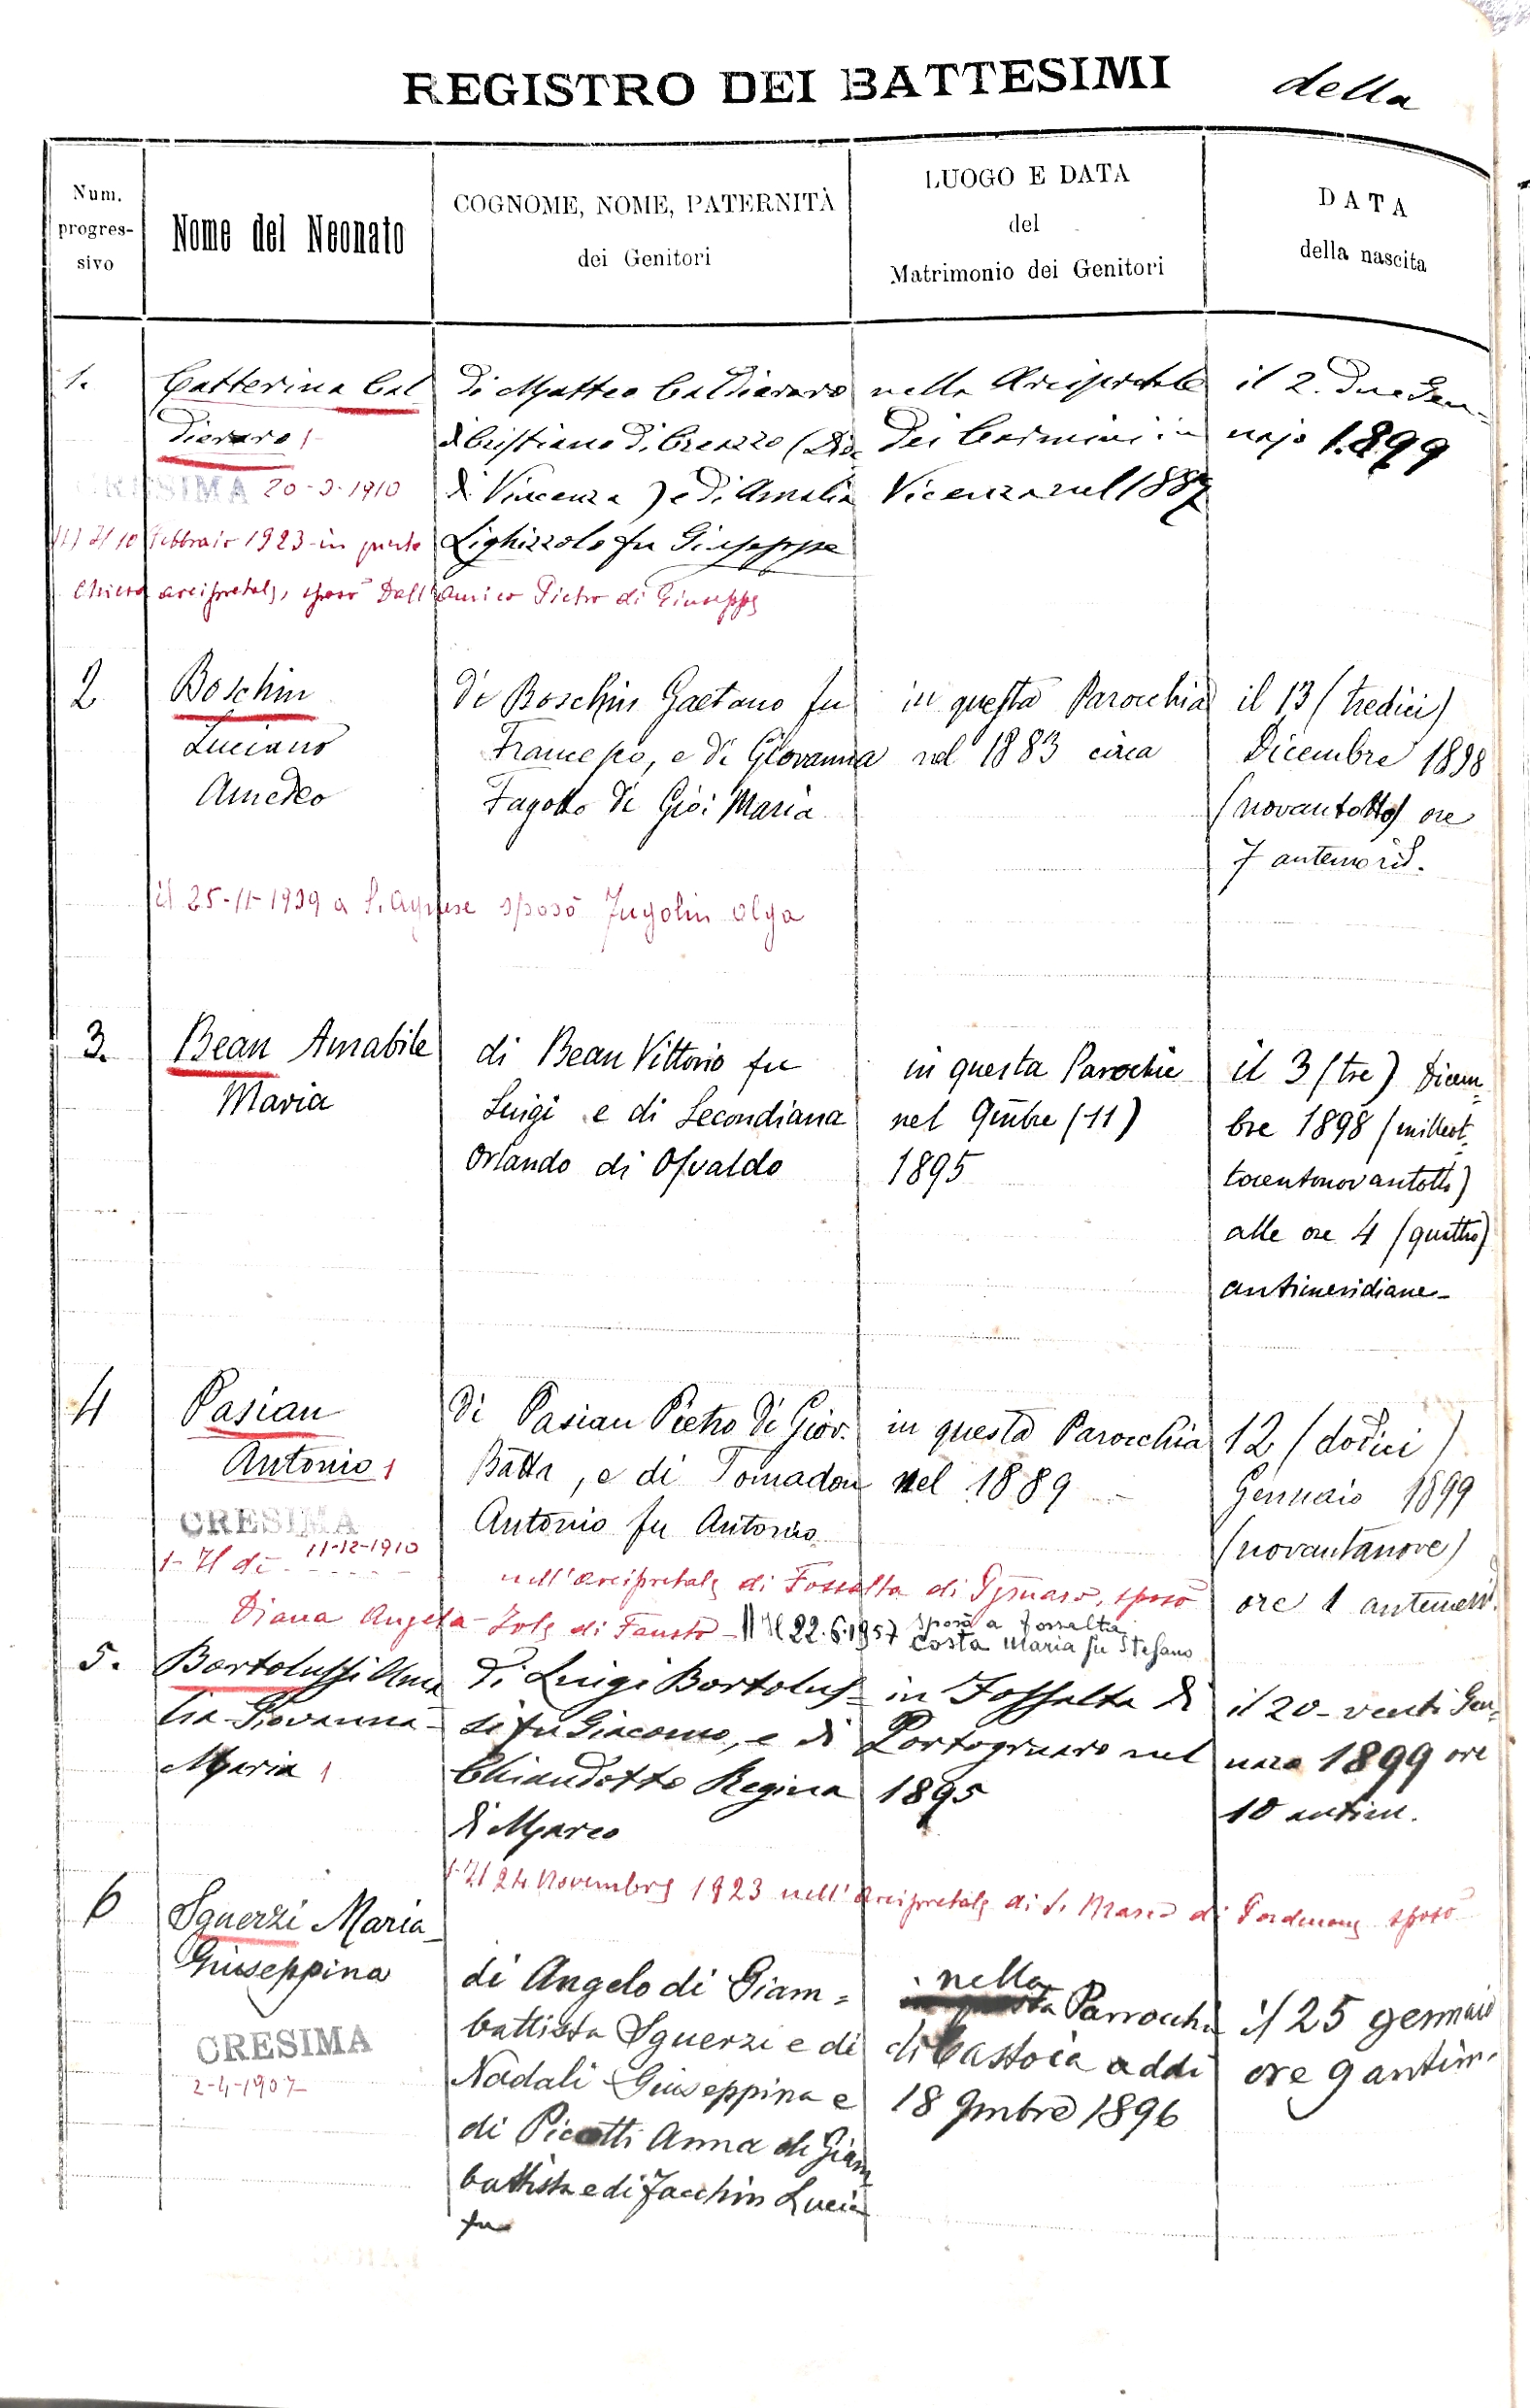 REGISTRO DEI BATTESIMI della
Num. progres- sivo
Nome del Neonato
COGNOME, NOME, PATERNITÀ
dei Genitori
LUOGO E DATA
del
Matrimonio dei Genitori
DATA
della nascita
1.
Catterina Cal
dieraro 1
CRESIMA 20-3-1910
di Matteo Caldieraro
di Cristiano di Creazzo (Dioc
di Vincenza) e di Amalia
Lighizzolo fu Giuseppe
nella Arcipretale
dei Carmini in
Vicenza nel 1887
il 2. due Gen=
najo 1899
1) Il 10 Febbraio 1923 in questa
Chiesa arcipretale, sposò Dall'Amico Pietro di Giuseppe
2
Boschin
Luciano
Amedeo
di Boschin Gaetano fu
Francesco, e di Giovanna
Fagotto di Gio: Maria
in questa Parocchia
nel 1883 circa
il 13 (tredici)
Dicembre 1898
(novantotto) ore
7 antemerid.
il 25-11-1939 a S. Agnese sposò Zugolin Olga
3.
Bean Amabile
Maria
di Bean Vittorio fu
Luigi e di Secondiana
Orlando di Osvaldo
in questa Parochia
nel 9mbre (11)
1895
il 3 (tre) Dicem=
bre 1898 (milleot=
tocentonovantotto)
alle ore 4 (quattro)
antimeridiane-
4
Pasian
Antonio 1
CRESIMA
11-12-1910
di Pasian Pietro di Giov.
Batta, e di Tomadon
Antonio fu Antonio
in questa Parocchia
nel 1889
12 (dodici)
Gennaio 1899
(novantanove)
ore 1 antemerid.
1- Il dì ...... nell'arcipretale di Fossalta di Pgruaro, sposò
Diana Angela-Iole di Fausto - II Il 22.6.1957 sposò a Fossalta
Costa Maria fu Stefano
5.
Bortolussi Ama
lia-Giovanna-
Maria 1
di Luigi Bortolus=
si fu Giacomo, e di
Chiandotto Regina
di Marco
in Fossalta di
Portogruaro nel
1895
il 20-venti Gen=
naro 1899 ore
10 antim.
1- Il 24 Novembre 1923 nell'Arcipretale di S. Marco di Pordenone sposò
6
Sguerzi Maria
Giuseppina
CRESIMA
2-4-1907
di Angelo di Giam=
battista Sguerzi e di
Nadali Giuseppina e
di Picotti Anna di Giam
battista e di Jacchin Lucia
fu
nella
Parrocchia
di Castoia addi
18 9mbre 1896
il 25 gennaio
ore 9 antim.